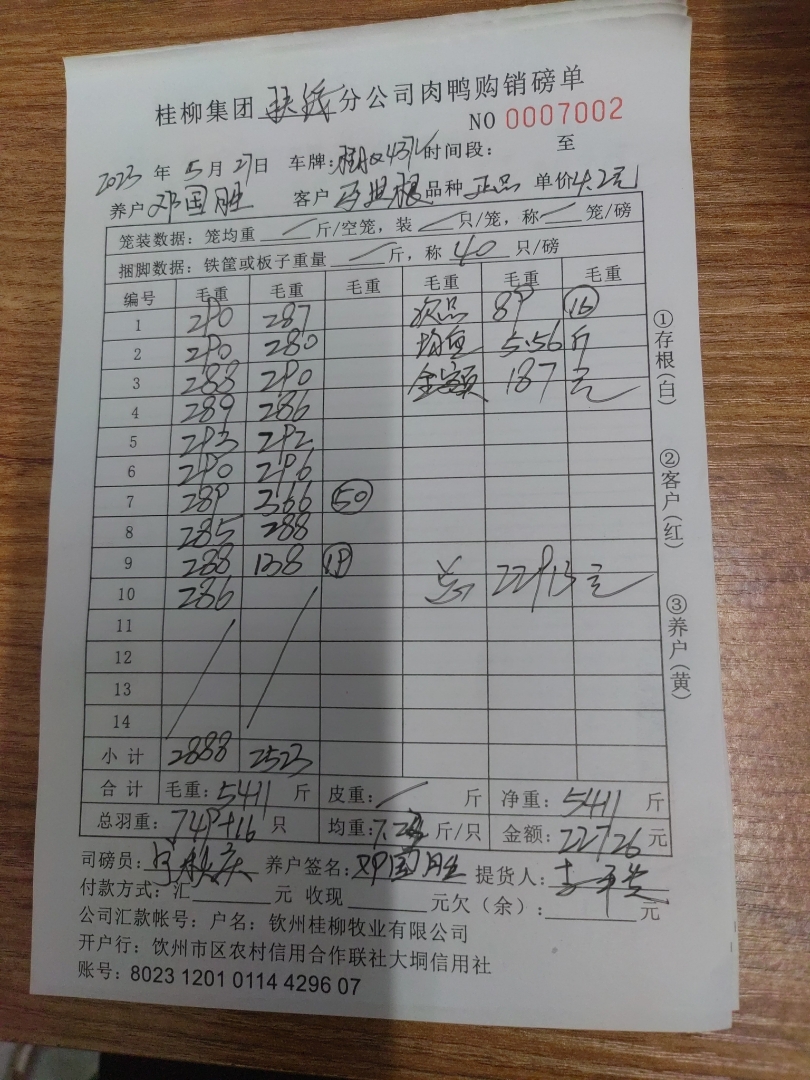 桂柳集团 分公司肉鸭购销磅单
NO 0007002
2023 年 5 月 27 日 车牌: 时间段: 至
养户 邓国胜 客户 品种 正品 单价 4.2元
笼装数据：笼均重 / 斤/空笼，装 / 只/笼，称 / 笼/磅
捆脚数据：铁筐或板子重量 / 斤，称 40 只/磅
编号 毛重 毛重 毛重 毛重 毛重 毛重
1 290 287 次品 89 16
2 290 280 均重 5.56 斤
3 288 290 金额 187 元
4 289 286
5 293 292
6 290 296
7 289 366 50
8 285 288
9 288 138 19 总 22913 元
10 286
11
12
13
14
小计 2888 2523
合计 毛重: 5411 斤 皮重: / 斤 净重: 5411 斤
总羽重: 749+16 只 均重: 斤/只 金额: 22726 元
司磅员: 养户签名: 邓国胜 提货人:
付款方式: 汇 元 收现 元欠（余）: 元
公司汇款帐号：户名：钦州桂柳牧业有限公司
开户行：钦州市区农村信用合作联社大垌信用社
账号：8023 1201 0114 4296 07
①存根（白）
②客户（红）
③养户（黄）